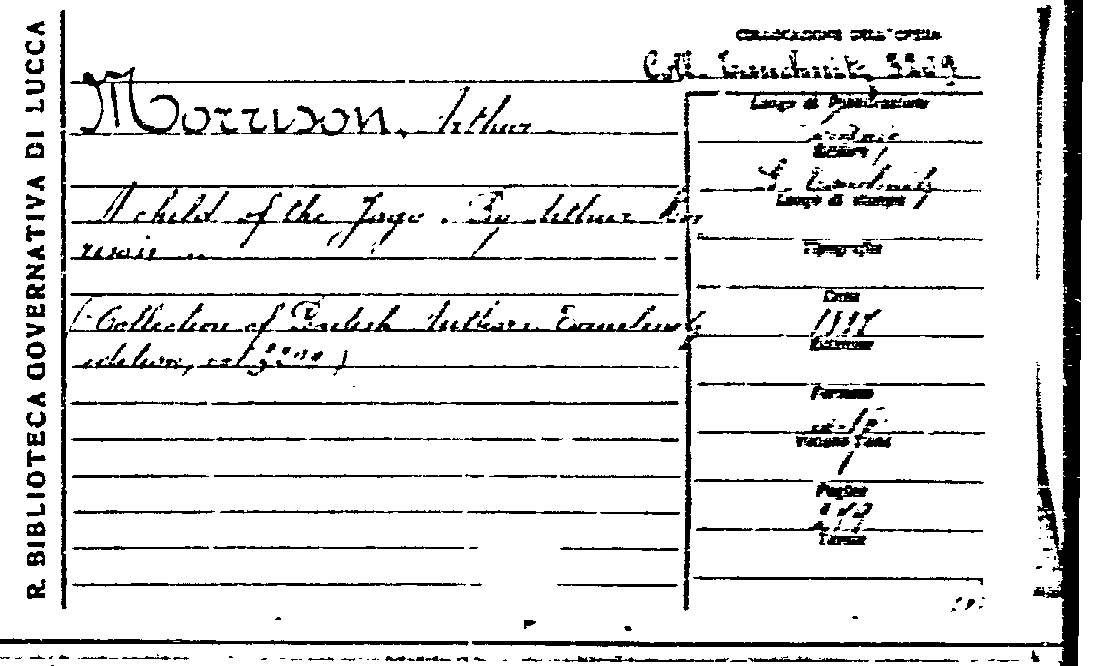 R. BIBLIOTECA GOVERNATIVA DI LUCCA
COLLOCAZIONE DELL'OPERA
Coll. Tauchnitz
Morrison, Arthur
A child of the Jago. By Arthur Mor
rison
(Collection of British Authors Tauchnitz
edition, vol.
Luogo di Pubblicazione
Editore
B. Tauchnitz
Luogo di stampa
Tipografia
Data
Edizione
Formato
Volume Tomi
1
Pagine
Tavole